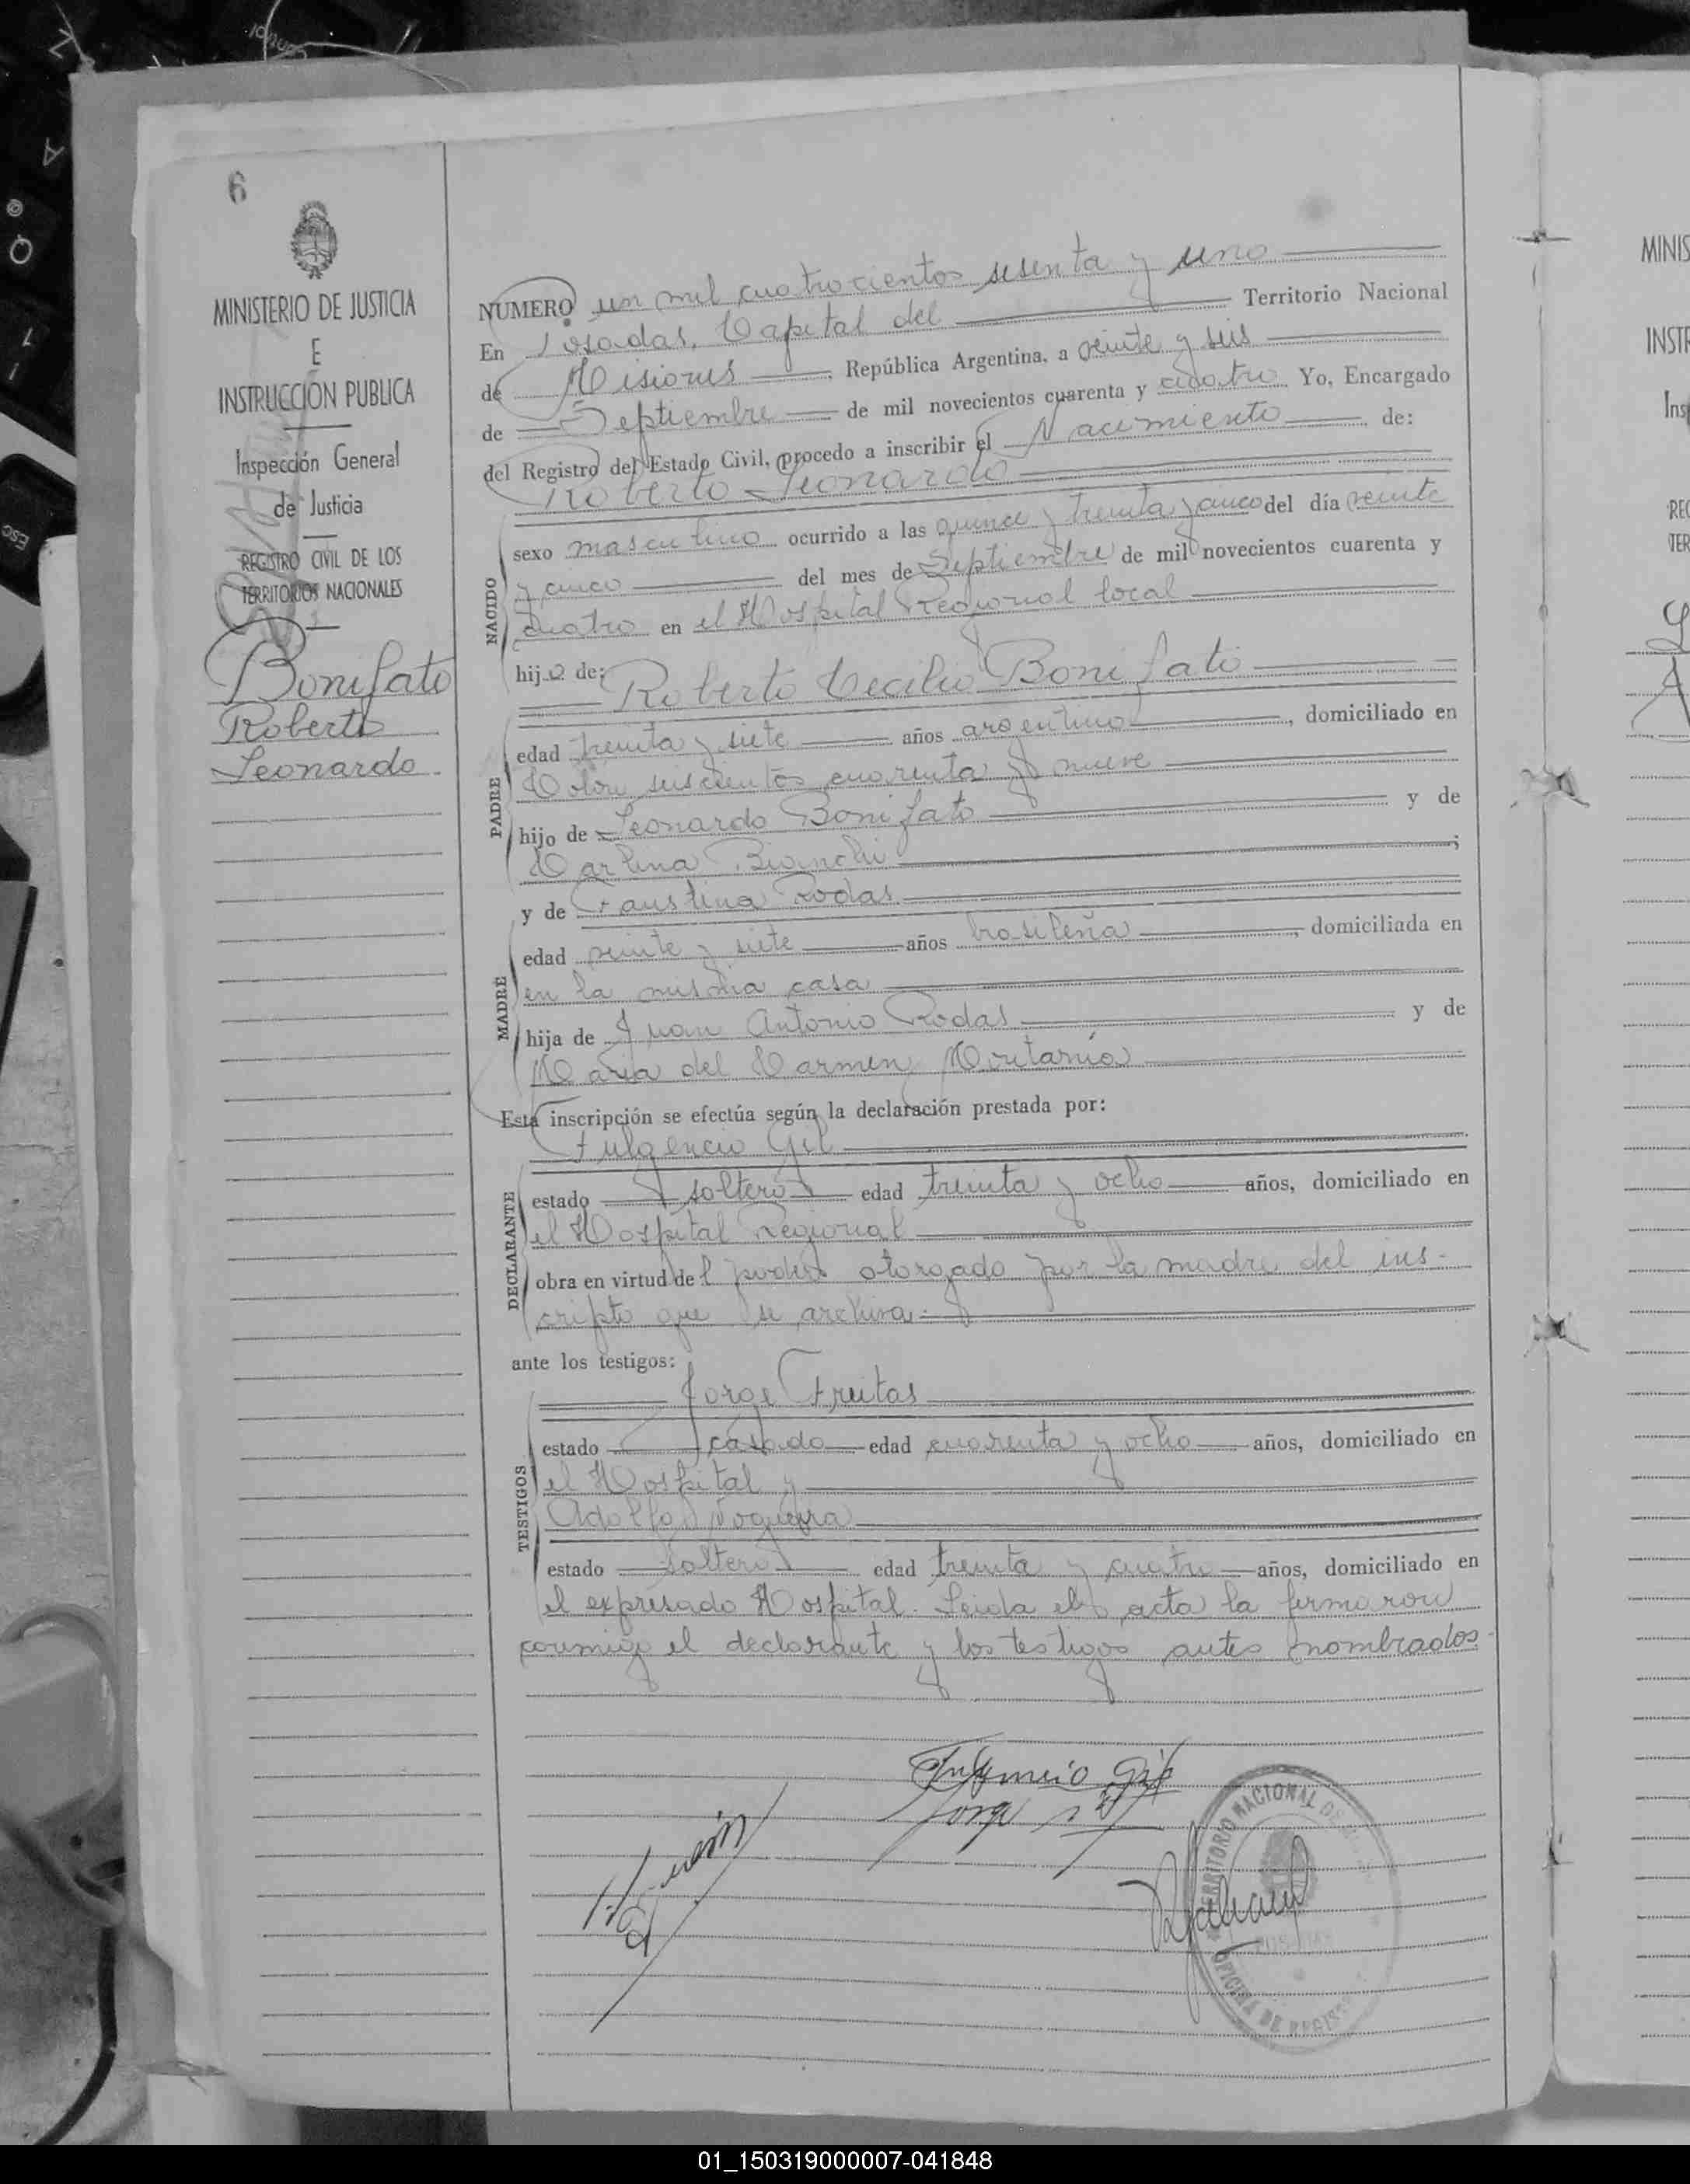 6
MINISTERIO DE JUSTICIA
E
INSTRUCCIÓN PUBLICA
Inspección General
de Justicia
REGISTRO CIVIL DE LOS
TERRITORIOS NACIONALES
Bonifato
Roberto
Leonardo
NUMERO un mil cuatrocientos sesenta y uno
En Posadas, Capital del Territorio Nacional
de Misiones, República Argentina, a veinte y seis
de Septiembre de mil novecientos cuarenta y cuatro Yo, Encargado
del Registro del Estado Civil, procedo a inscribir el Nacimiento de:
Roberto Leonardo
NACIDO
sexo masculino ocurrido a las quince y treinta y cinco del día veinte
y cinco del mes de Septiembre de mil novecientos cuarenta y
cuatro en el Hospital Regional local
hijo de:
Roberto Cecilio Bonifato
PADRE
edad treinta y siete años argentino, domiciliado en
Colón seiscientos cuarenta y nueve
hijo de Leonardo Bonifato y de
Carlina Bianchi;
y de Faustina Rodas
MADRE
edad veinte y siete años brasileña, domiciliada en
en la misma casa
hija de Juan Antonio Rodas y de
María del Carmen
Esta inscripción se efectúa según la declaración prestada por:
Fulgencio Gil
DECLARANTE
estado soltero edad treinta y ocho años, domiciliado en
el Hospital Regional
obra en virtud del poder otorgado por la madre del ins-
cripto que se archiva.
ante los testigos:
Jorge Freitas
TESTIGOS
estado casado edad cuarenta y ocho años, domiciliado en
el Hospital y
Adolfo Noguera
estado soltero edad treinta y cuatro años, domiciliado en
el expresado Hospital. Leida el acta la firmaron
conmigo el declarante y los testigos antes nombrados.
Fulgencio Gil
Jorge
TERRITORIO NACIONAL DE
OFICINA DE REGIST
MINIS
INSTR
Ins
REG
TER
01_150319000007-041848